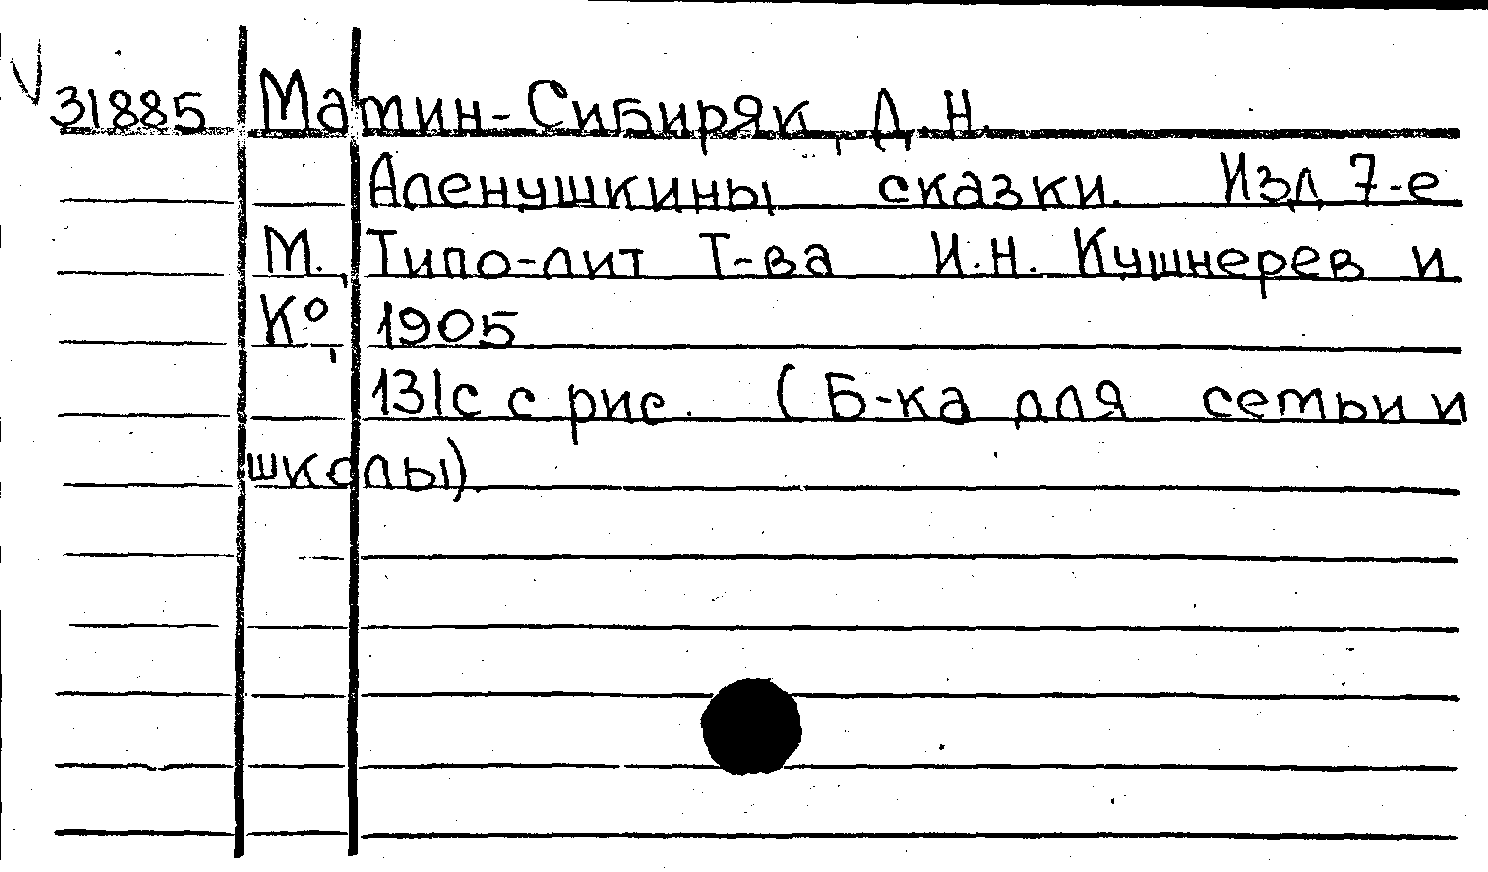 31885 Мамин-Сибиряк, Д.Н.
Аленушкины сказки. Изд 7-е
М., Типо-лит Т-ва И.Н. Кушнерев и
К°, 1905
131с с рис. (Б-ка для семьи и
школы)